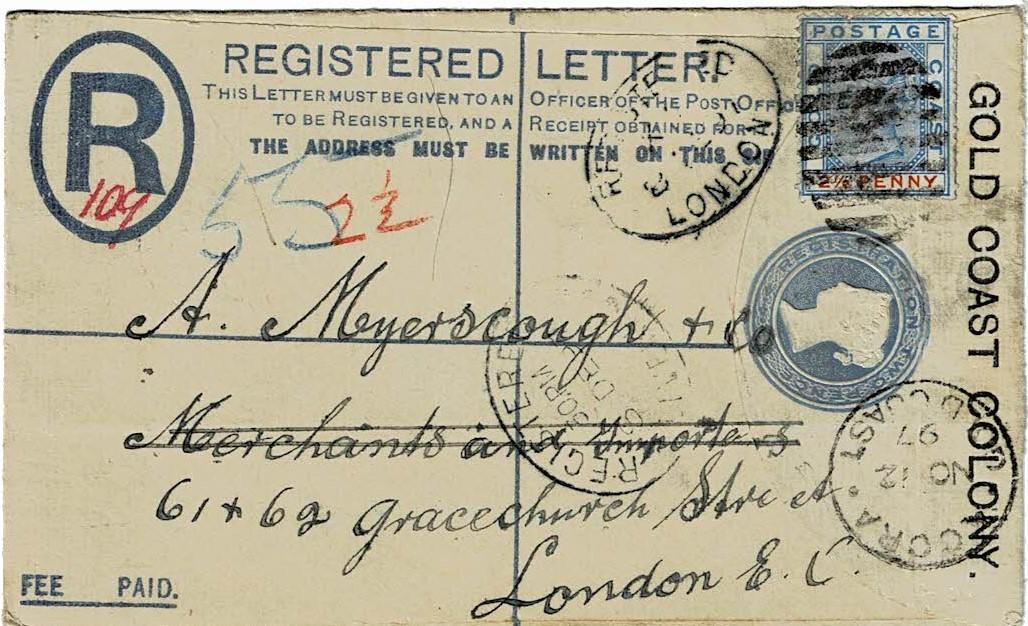 R
REGISTERED LETTER.
THIS LETTER MUST BE GIVEN TO AN OFFICER OF THE POST OFFICE
TO BE REGISTERED, AND A RECEIPT OBTAINED FOR
THE ADDRESS MUST BE WRITTEN ON THIS
109
55
2½
REGISTERED
LONDON
POSTAGE
GOLD COAST
2½ PENNY
GOLD COAST COLONY.
A. Myerscough & Co
Merchants and Importers
61 & 62 Gracechurch Street
London E. C.
REGISTERED
ACCRA
NO 12
97
GOLD COAST
FEE PAID.